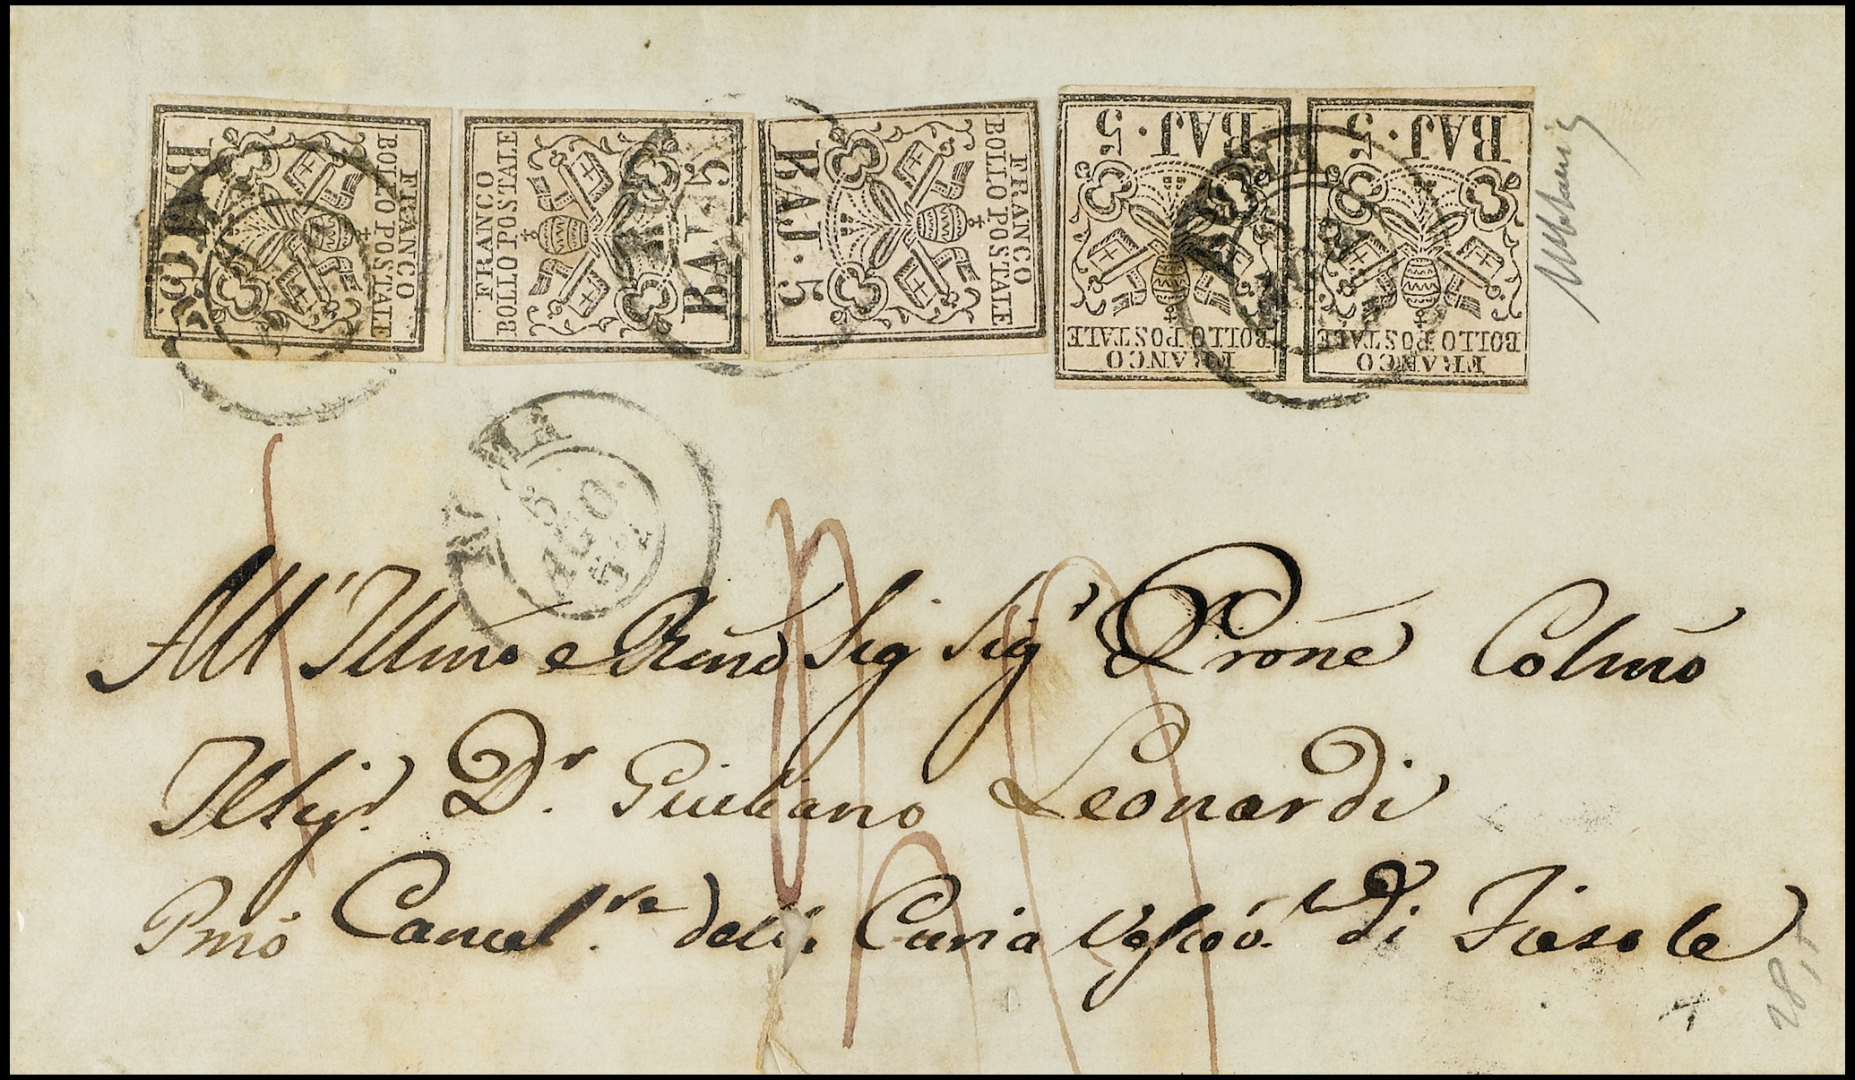 FRANCO
BOLLO POSTALE
BAJ
FRANCO
BOLLO POSTALE
BAJ · 5
FRANCO
BOLLO POSTALE
BAJ · 5
FRANCO
BOLLO POSTALE
BAJ · 5
FRANCO
BOLLO POSTALE
BAJ · 5
ROMA
5
AGO
52
All' Illmo e Rmo Sig Sigr Prone Colmo
Il Sigr Dr. Giuliano Leonardi
Pmo Cancel.re della Curia Vescov.le di Fiesole
28,5